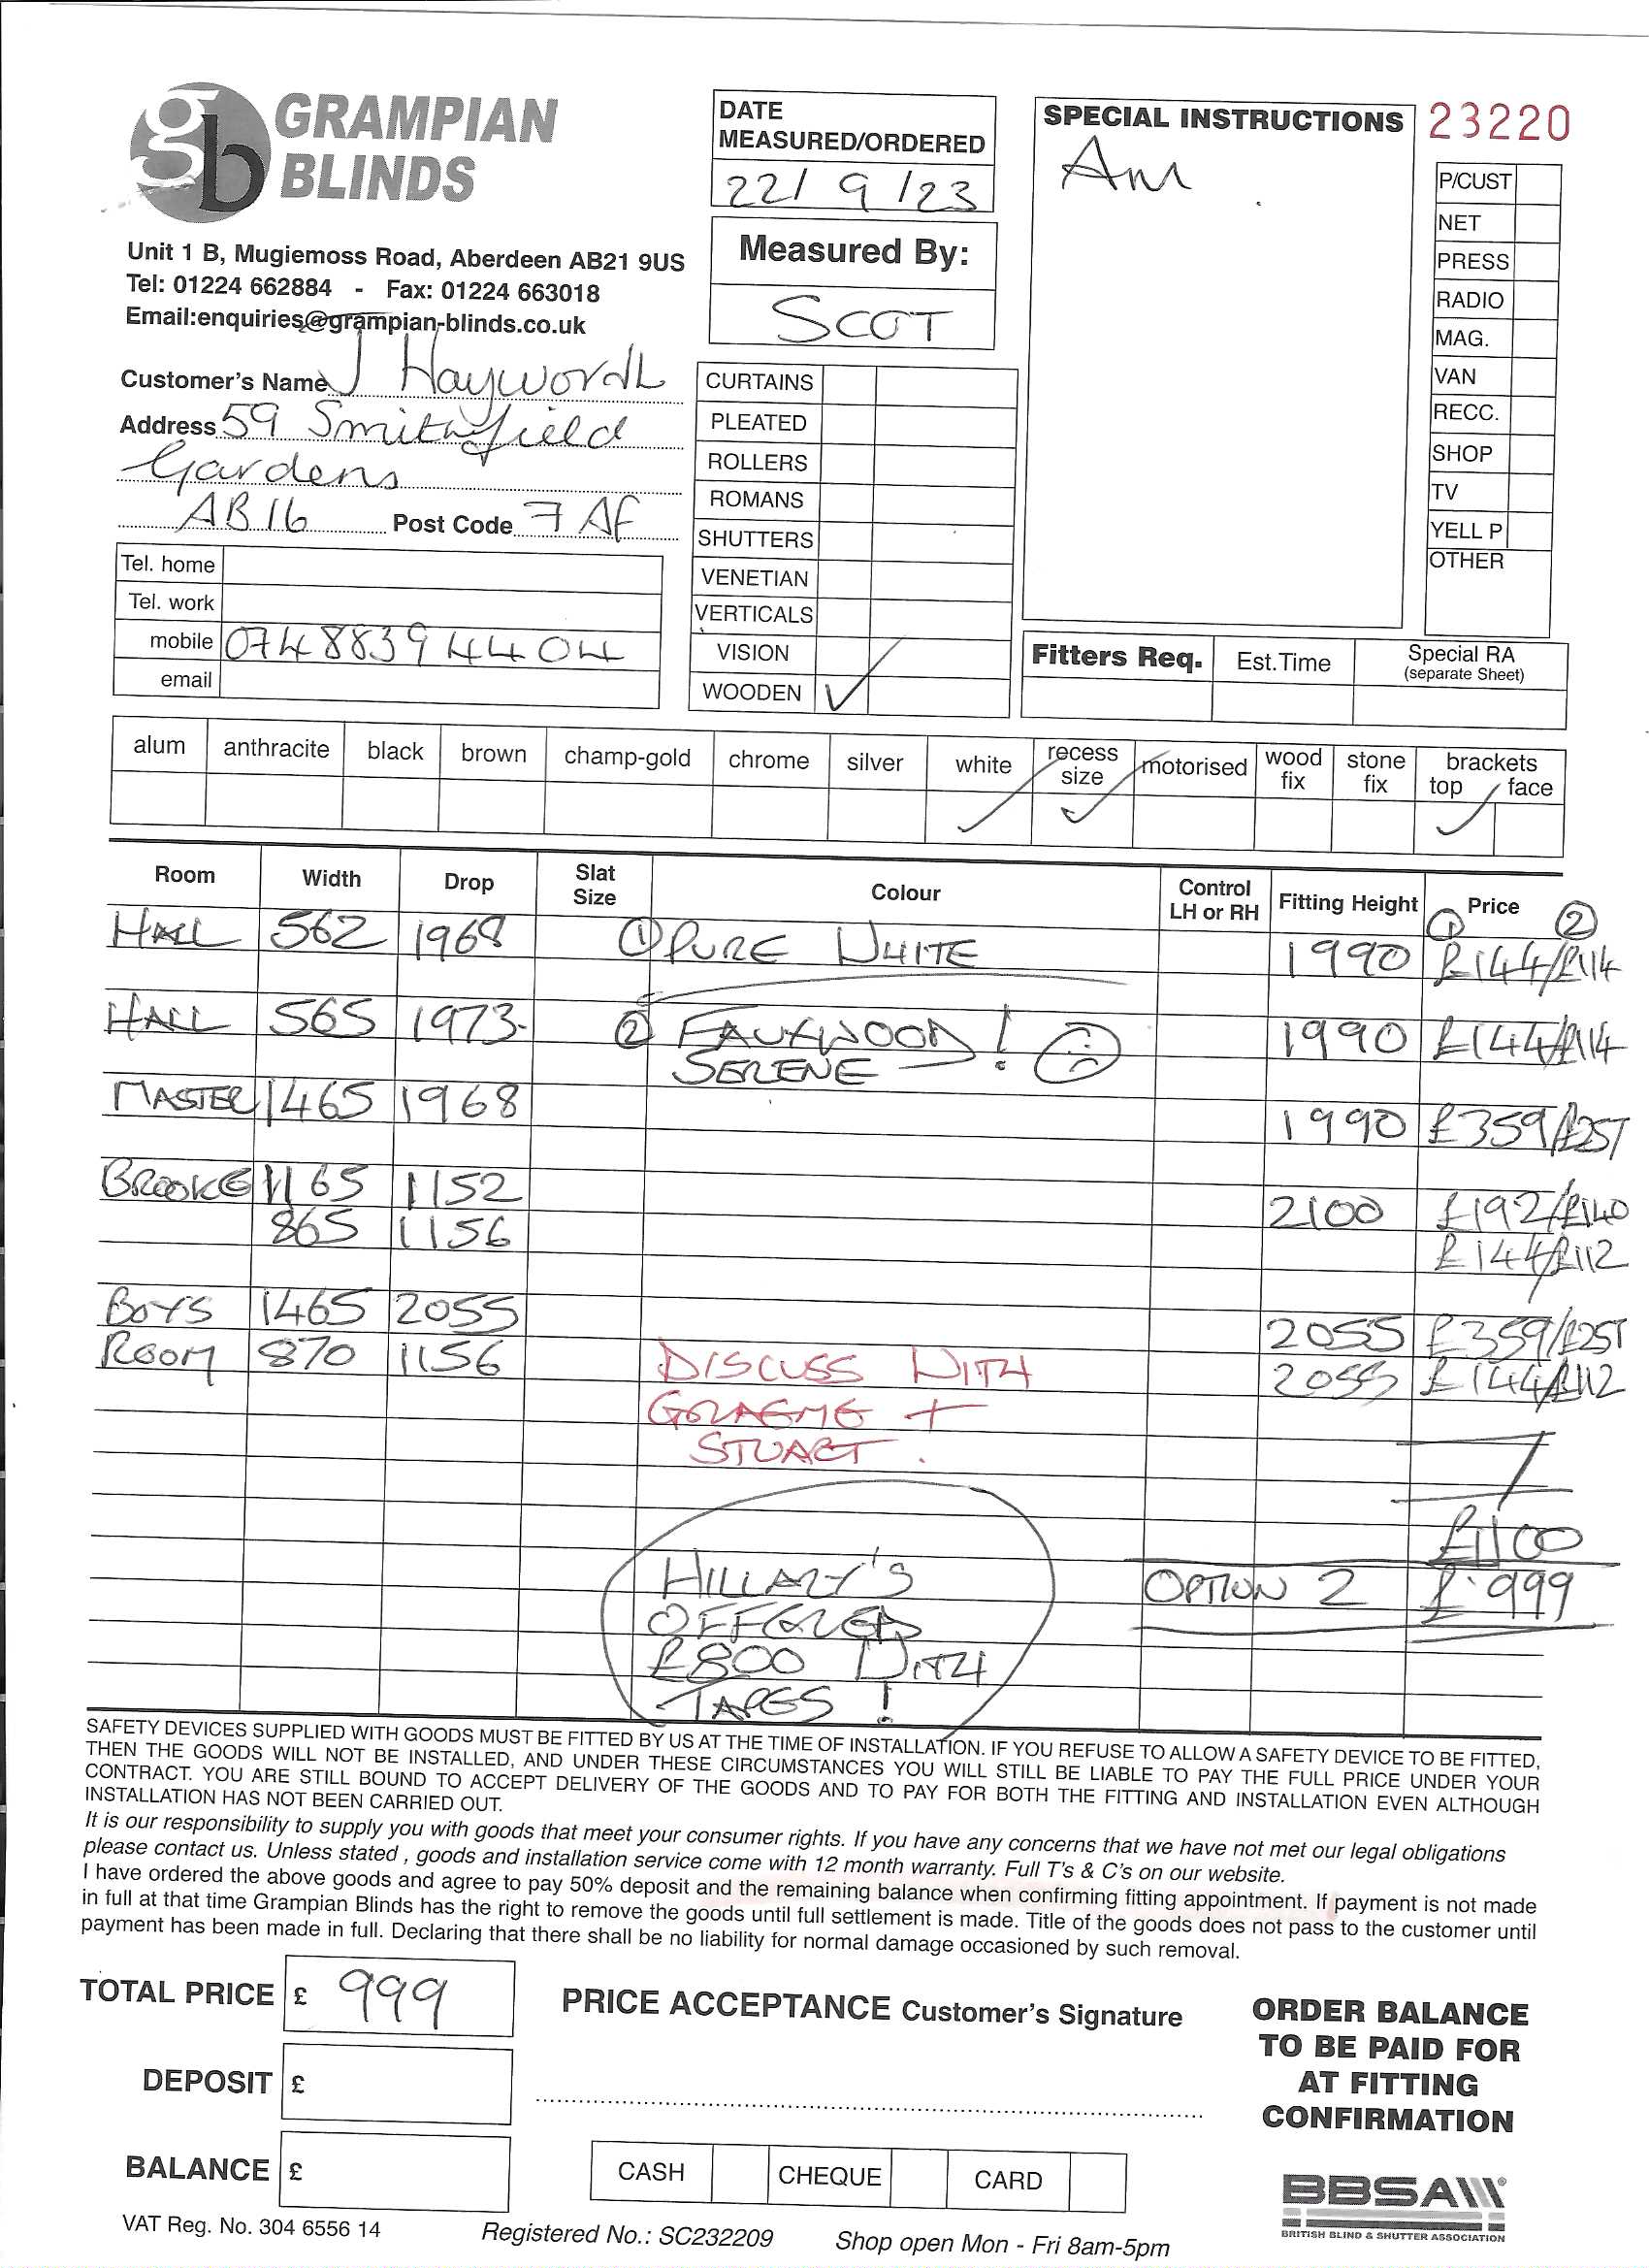 gb GRAMPIAN
BLINDS
Unit 1 B, Mugiemoss Road, Aberdeen AB21 9US
Tel: 01224 662884 - Fax: 01224 663018
Email:enquiries@grampian-blinds.co.uk
Customer's Name J Hayworth
Address 59 Smithfield
Gardens
AB16 Post Code 7 AF
Tel. home
Tel. work
mobile 07488394404
email
DATE
MEASURED/ORDERED
22/ 9 /23
Measured By:
SCOT
CURTAINS
PLEATED
ROLLERS
ROMANS
SHUTTERS
VENETIAN
VERTICALS
VISION
WOODEN ✓
SPECIAL INSTRUCTIONS
AM
23220
P/CUST
NET
PRESS
RADIO
MAG.
VAN
RECC.
SHOP
TV
YELL P
OTHER
Fitters Req. Est.Time Special RA
(separate Sheet)
alum anthracite black brown champ-gold chrome silver white recess size motorised wood fix stone fix brackets top face
✓ ✓ ✓
Room Width Drop Slat Size Colour Control LH or RH Fitting Height Price ① ②
HALL 562 1968 ① PURE WHITE 1990 £144/£114
HALL 565 1973 ② FAUXWOOD ! 1990 £144/£114
SERENE
MASTER 1465 1968 1990 £359/£257
BROOKE 1165 1152 2100 £192/£140
865 1156 £144/£112
BOYS 1465 2055 2055 £359/£257
ROOM 870 1156 2055 £144/£112
DISCUSS WITH
GRAEME +
STUART.
£1100
OPTION 2 £999
HILLARY'S
OFFERED
£800 WITH
TAPES !
SAFETY DEVICES SUPPLIED WITH GOODS MUST BE FITTED BY US AT THE TIME OF INSTALLATION. IF YOU REFUSE TO ALLOW A SAFETY DEVICE TO BE FITTED,
THEN THE GOODS WILL NOT BE INSTALLED, AND UNDER THESE CIRCUMSTANCES YOU WILL STILL BE LIABLE TO PAY THE FULL PRICE UNDER YOUR
CONTRACT. YOU ARE STILL BOUND TO ACCEPT DELIVERY OF THE GOODS AND TO PAY FOR BOTH THE FITTING AND INSTALLATION EVEN ALTHOUGH
INSTALLATION HAS NOT BEEN CARRIED OUT.
It is our responsibility to supply you with goods that meet your consumer rights. If you have any concerns that we have not met our legal obligations
please contact us. Unless stated , goods and installation service come with 12 month warranty. Full T's & C's on our website.
I have ordered the above goods and agree to pay 50% deposit and the remaining balance when confirming fitting appointment. If payment is not made
in full at that time Grampian Blinds has the right to remove the goods until full settlement is made. Title of the goods does not pass to the customer until
payment has been made in full. Declaring that there shall be no liability for normal damage occasioned by such removal.
TOTAL PRICE £ 999
DEPOSIT £
BALANCE £
PRICE ACCEPTANCE Customer's Signature
CASH CHEQUE CARD
ORDER BALANCE
TO BE PAID FOR
AT FITTING
CONFIRMATION
BBSA
BRITISH BLIND & SHUTTER ASSOCIATION
VAT Reg. No. 304 6556 14 Registered No.: SC232209 Shop open Mon - Fri 8am-5pm